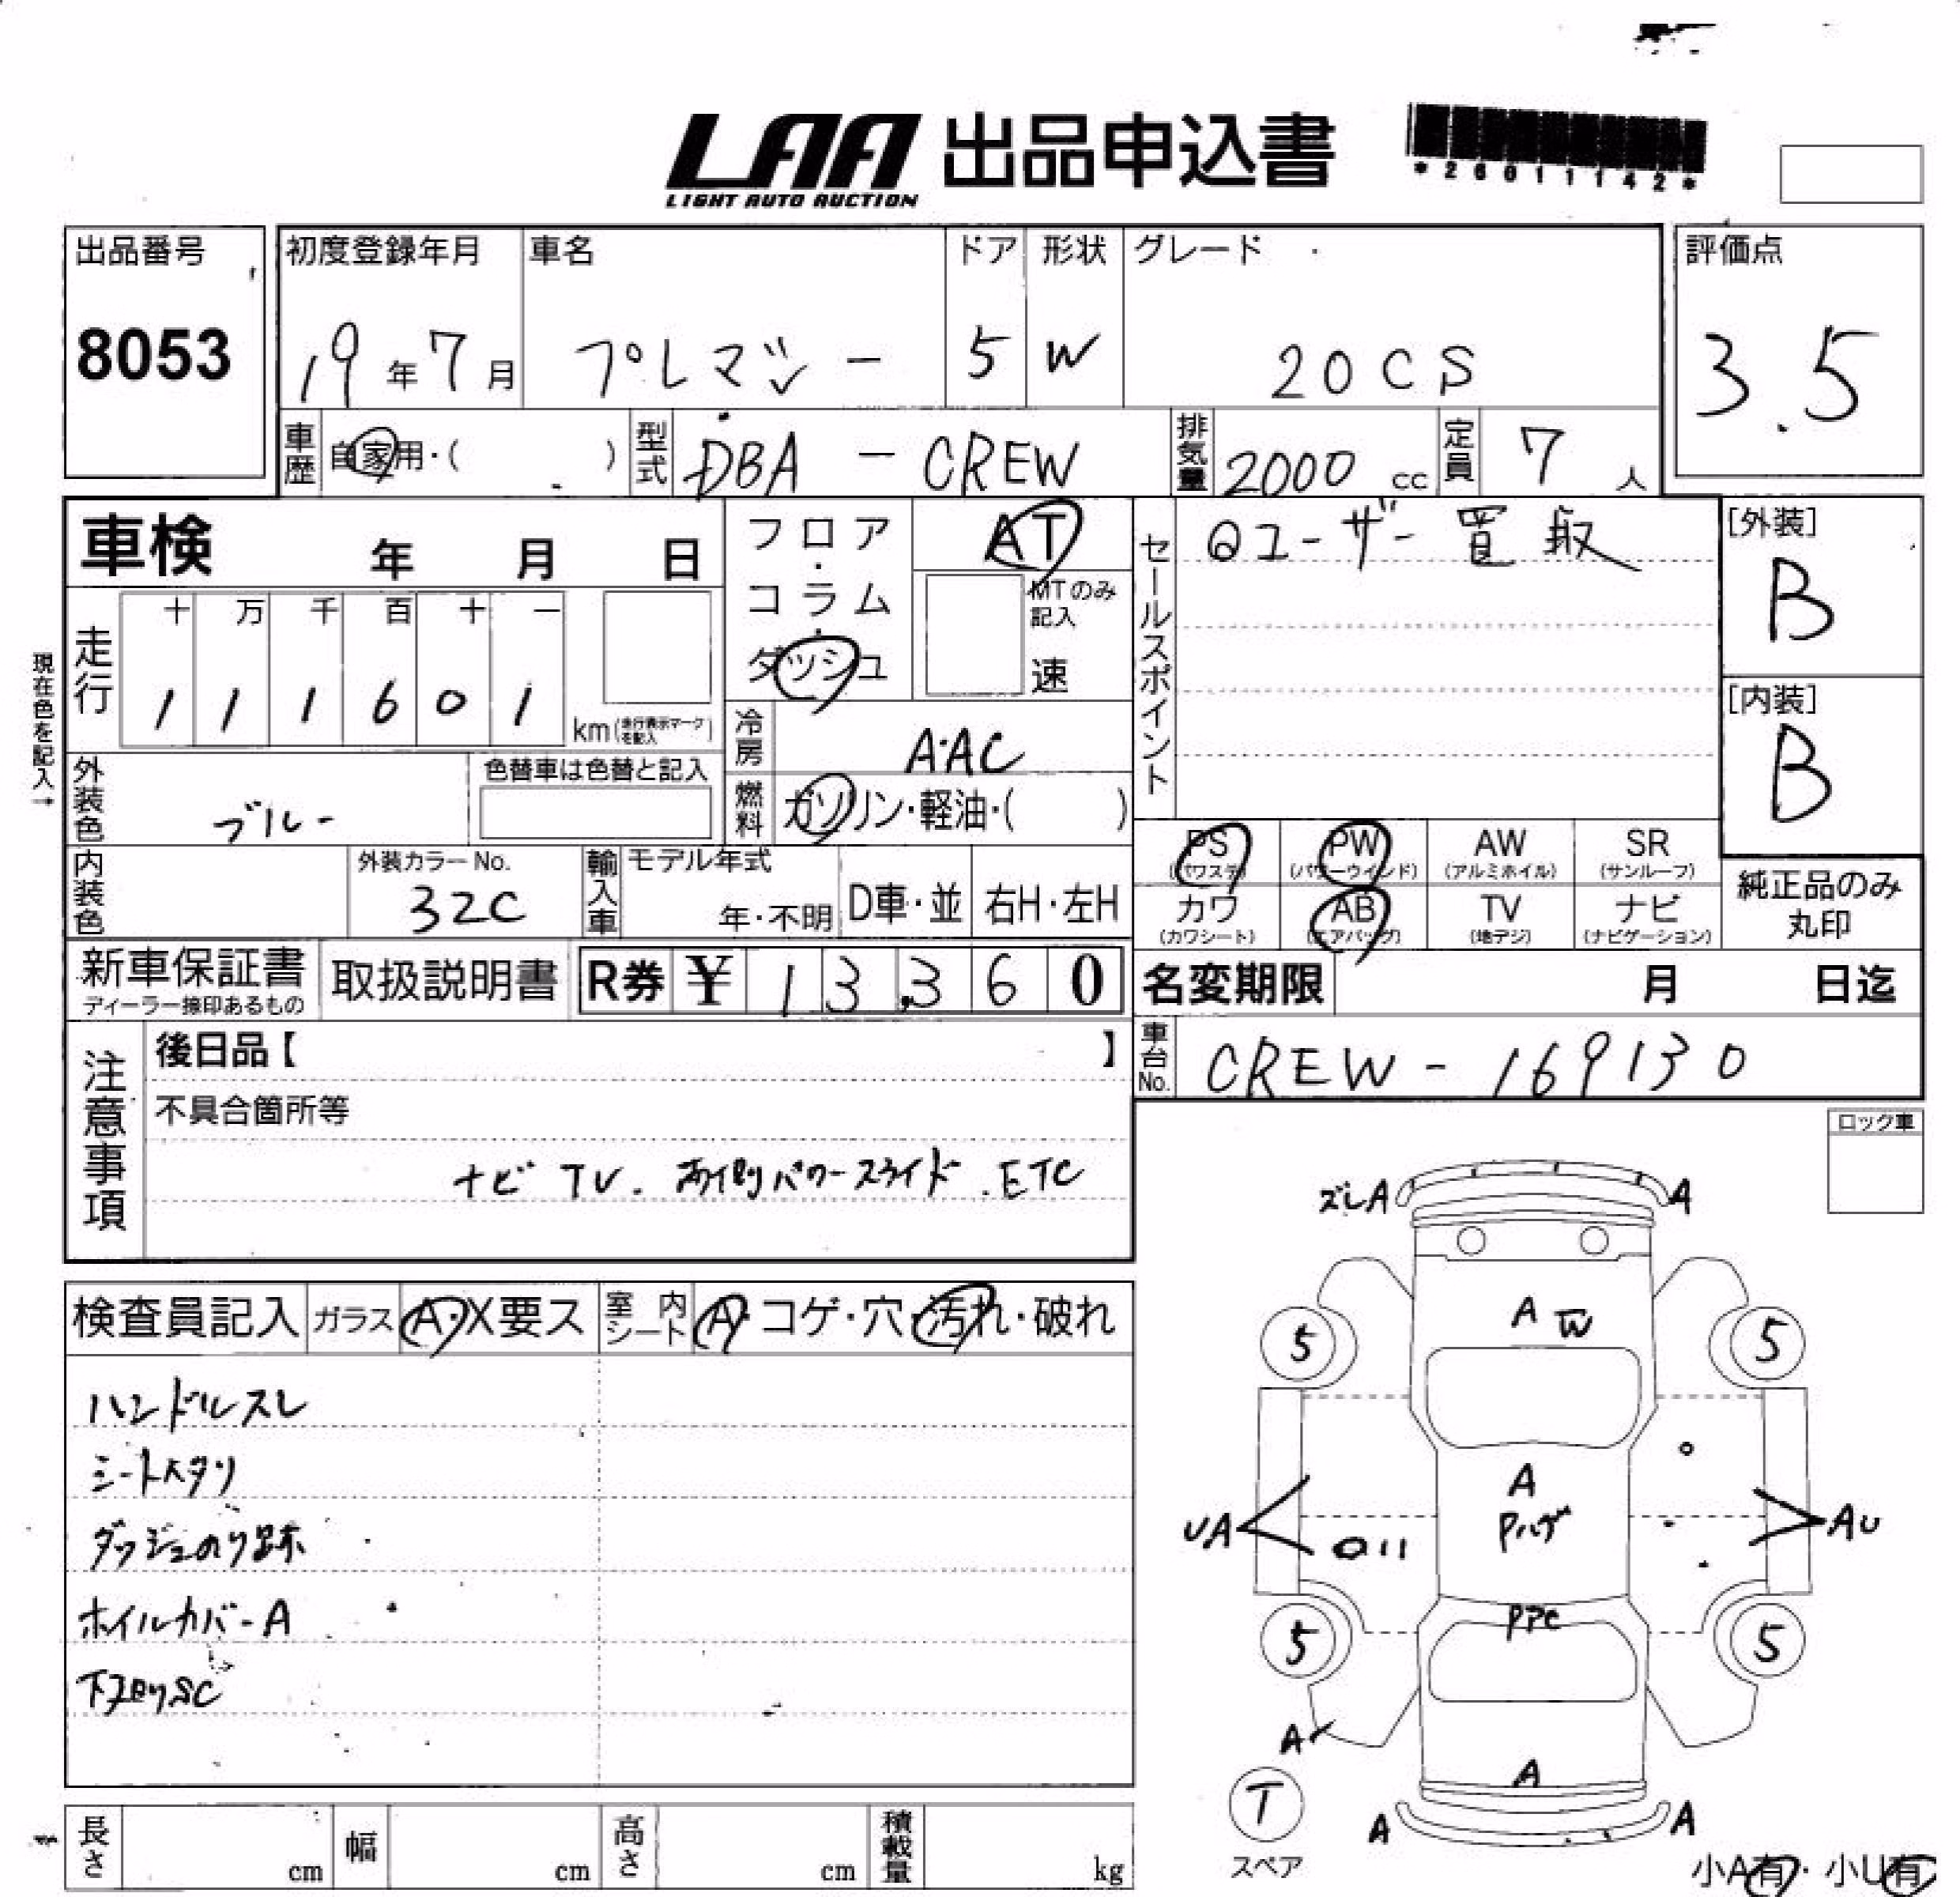 LAA 出品申込書
LIGHT AUTO AUCTION
*26011142*
出品番号 初度登録年月 車名 ドア 形状 グレード 評価点
8053 19年7月 プレマシー 5 W 20CS 3.5
車歴 自家用・( ) 型式 DBA - CREW 排気量 2000 cc 定員 7 人
車検 年 月 日 フロア・コラム・ダッシュ AT
MTのみ記入 速
セールスポイント ①ユーザー買取
[外装] B
[内装] B
現在色を記入→
走行 十 万 千 百 十 一
1 1 1 6 0 1 km(走行表示マークを記入)
冷房 AAC
外装色 ブルー 色替車は色替と記入
燃料 ガソリン・軽油・( )
PS (パワステ) PW (パワーウインド) AW (アルミホイル) SR (サンルーフ)
カワ (カワシート) AB (エアバッグ) TV (地デジ) ナビ (ナビゲーション)
純正品のみ丸印
内装色 外装カラーNo. 32C 輸入車 モデル年式 年・不明 D車・並 右H・左H
新車保証書 ディーラー捺印あるもの 取扱説明書 R券 ¥ 13,360 名変期限 月 日迄
車台No. CREW - 169130
注意事項 後日品【 】
不具合箇所等
ナビ TV. 左側パワースライド.ETC
ロック車
検査員記入 ガラス A・X要ス 室内シート A・コゲ・穴・汚れ・破れ
ハンドルスレ
シートヘタリ
ダッシュのり跡
ホイルカバーA
下廻りSC
ズレA A
A W
5 5
A
Pハゲ
UA AU
5 5
A
A
A A
T
スペア
小A有・小U有
長さ cm 幅 cm 高さ cm 積載量 kg